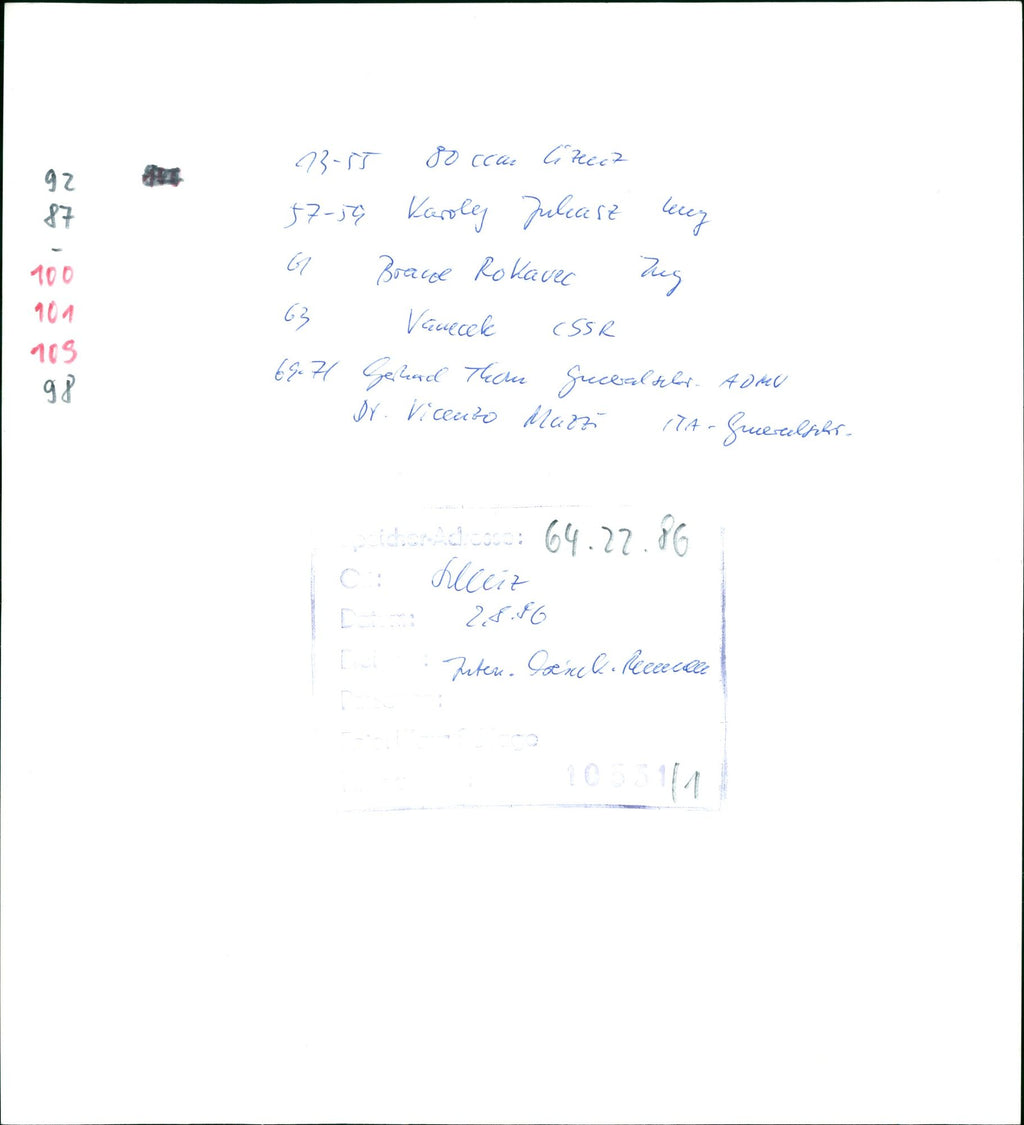 92
87
-
100
101
109
98
13-55 80 ccm Lizenz
57-59 Karoly Juhasz Ung
61 Brane Rokavec Jug
63 Vanecek CSSR
69-71 Gerhard Thom Generalsekr. ADMV
Dr. Vicenzo Mazzi ITA-Generalsekr.
Speicher-Adresse: 64.22.86
Ort: Schleiz
Datum: 2.8.86
Intern. Schleiz.
10551/1